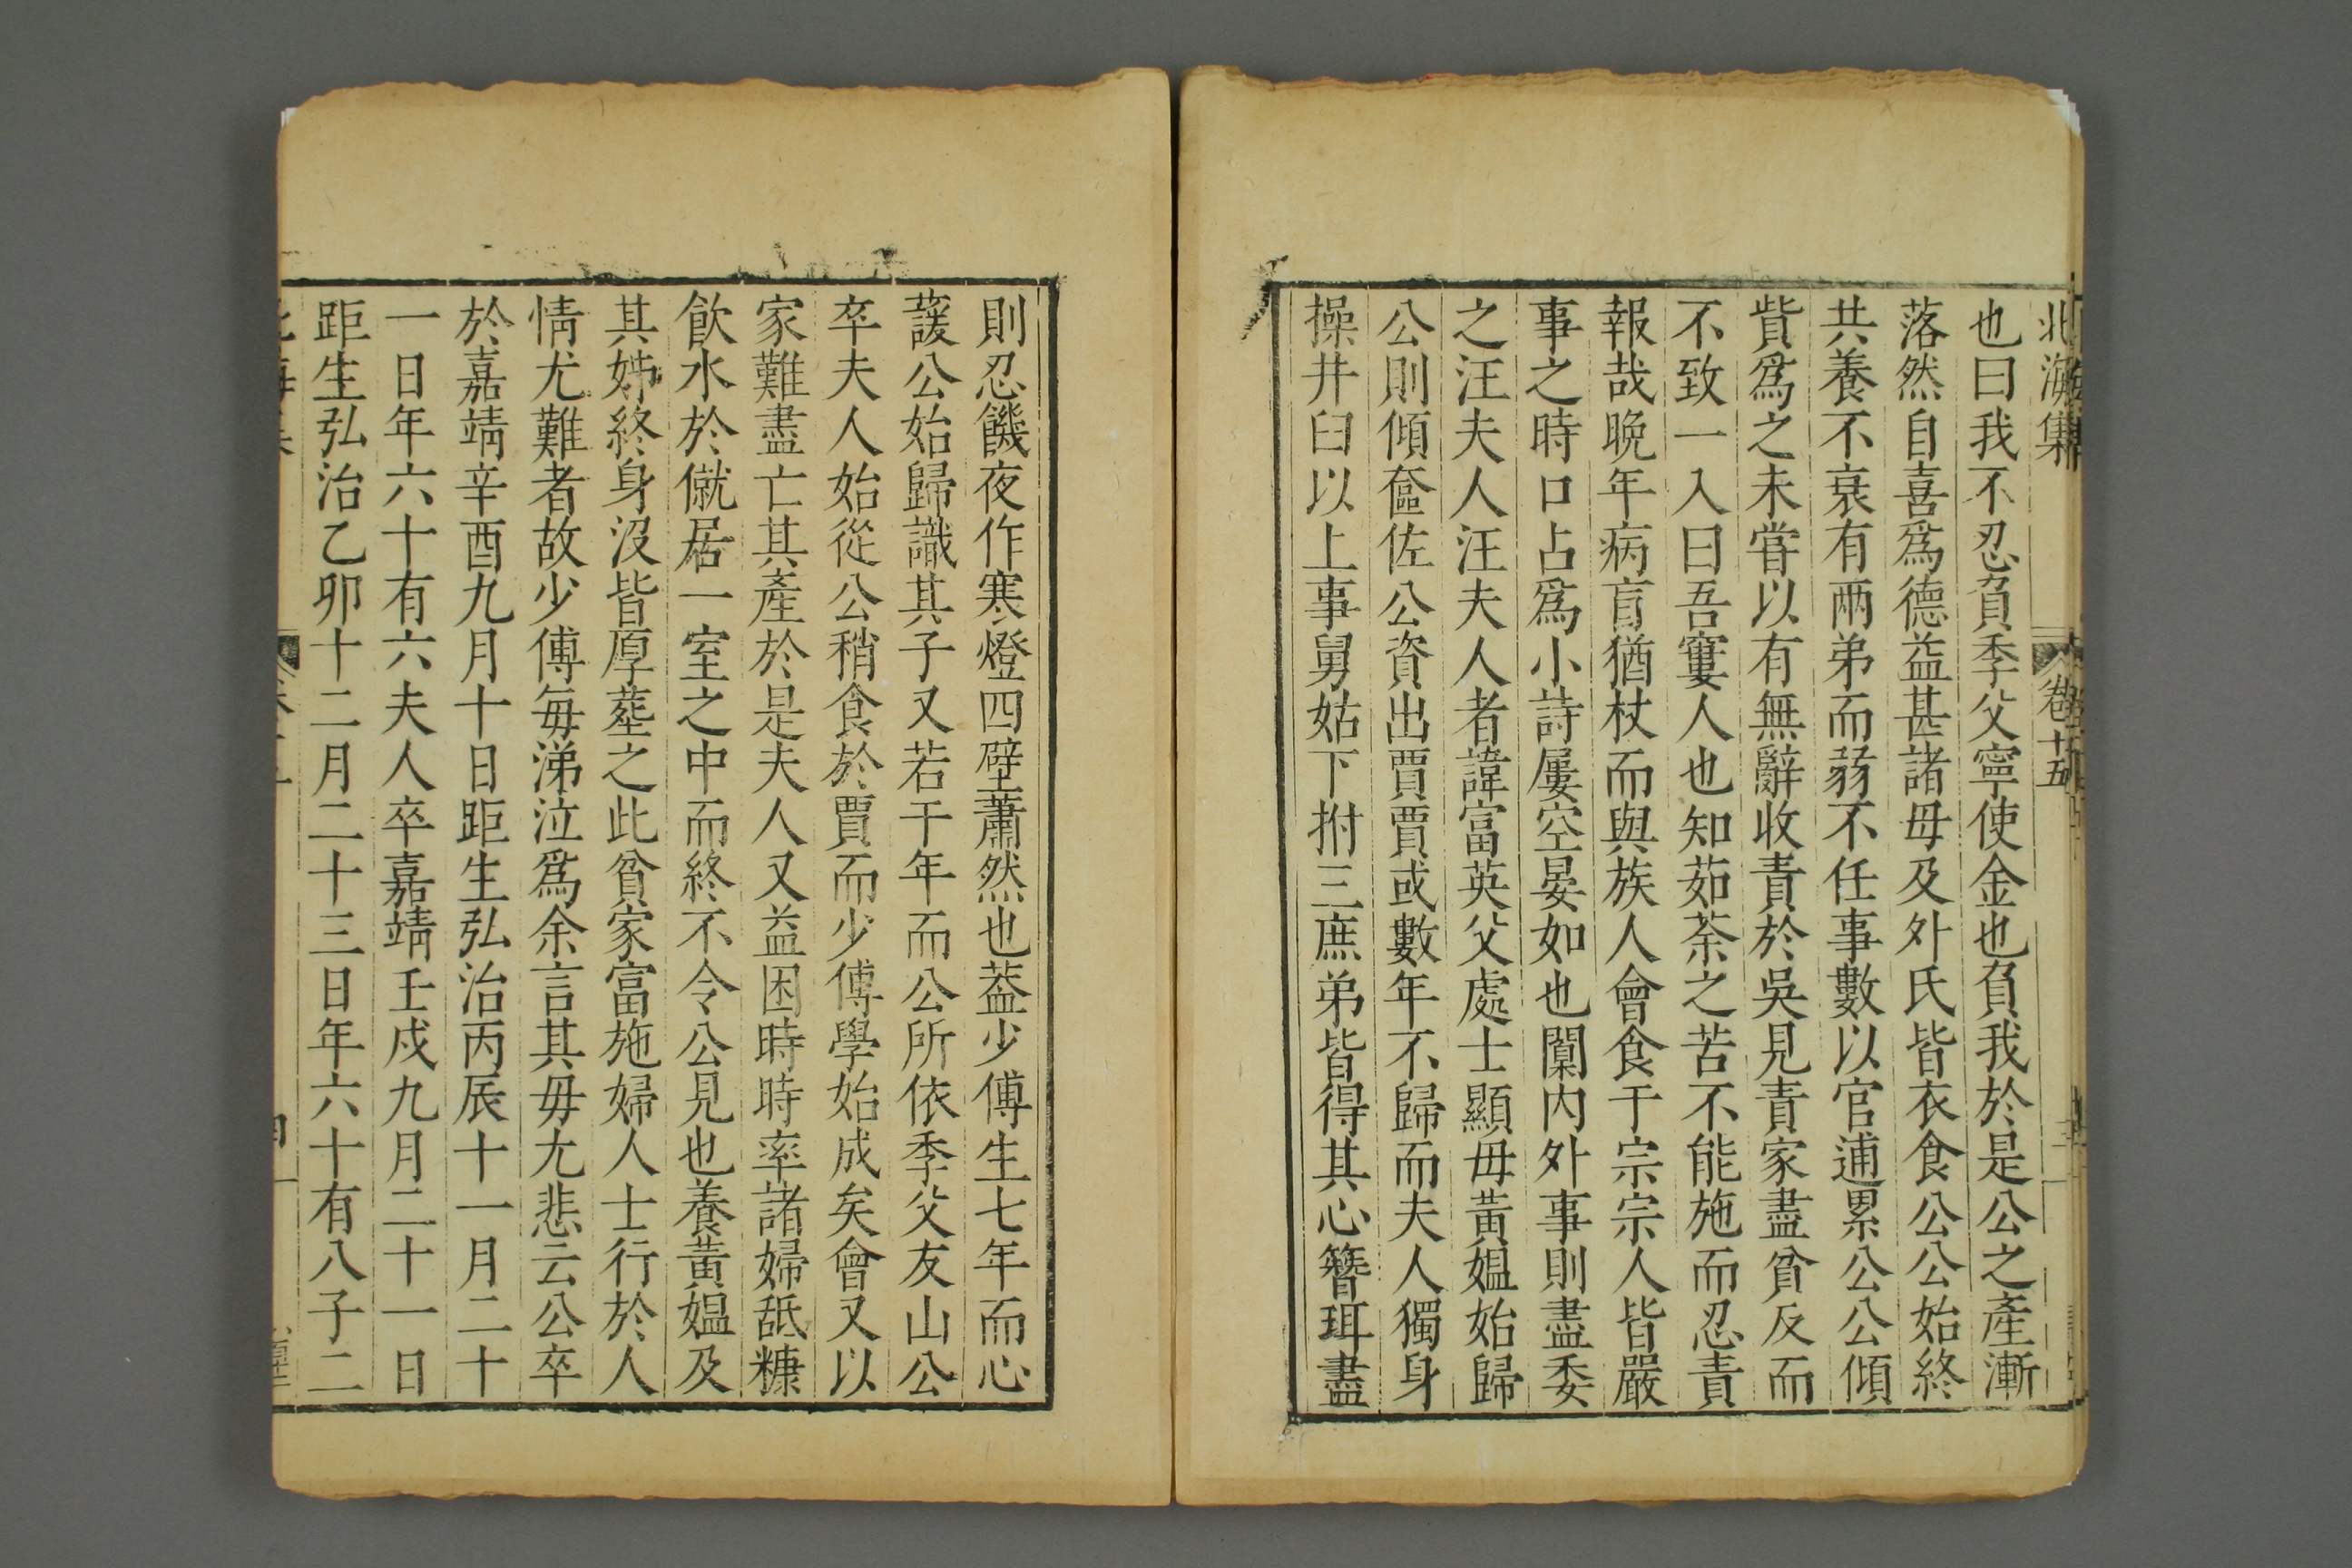 北海集
卷十五
也曰我不忍負季父寧使金也負我於是公之產漸
落然自喜爲德益甚諸毋及外氏皆衣食公公始終
共養不衰有兩弟而弱不任事數以官逋累公公傾
貲爲之未甞以有無辭收責於吳見責家盡貧反而
不致一入曰吾窶人也知茹荼之苦不能施而忍責
報哉晚年病盲猶杖而與族人會食于宗宗人皆嚴
事之時口占爲小詩屢空晏如也閫內外事則盡委
之汪夫人汪夫人者諱富英父處士顯毋黃媼始歸
公則傾奩佐公資出賈賈或數年不歸而夫人獨身
操井臼以上事舅姑下拊三庶弟皆得其心簪珥盡
則忍饑夜作寒燈四壁蕭然也葢少傅生七年而心
護公始歸識其子又若干年而公所依季父友山公
卒夫人始從公稍食於賈而少傅學始成矣會又以
家難盡亡其產於是夫人又益困時時率諸婦舐糠
飲水於僦居一室之中而終不令公見也養黃媼及
其姊終身沒皆厚塟之此貧家富施婦人士行於人
情尤難者故少傅每涕泣爲余言其毋尤悲云公卒
於嘉靖辛酉九月十日距生弘治丙辰十一月二十
一日年六十有六夫人卒嘉靖壬戌九月二十一日
距生弘治乙卯十二月二十三日年六十有八子二